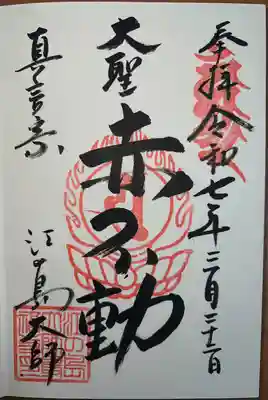 奉拝 令和七年三月二十二日
大聖
赤不動
真言宗
江の島大師